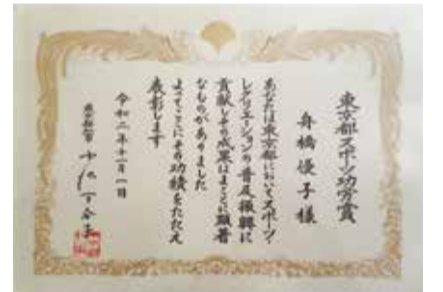 東京都スポーツ功労賞
舟橋優子様
あなたは東京都においてスポーツ・
レクリエーションの普及振興に
貢献しその成果はまことに顕著
なものがありました
よってここにその功績をたたえ
表彰します
令和二年十一月一日
東京都知事 小池百合子